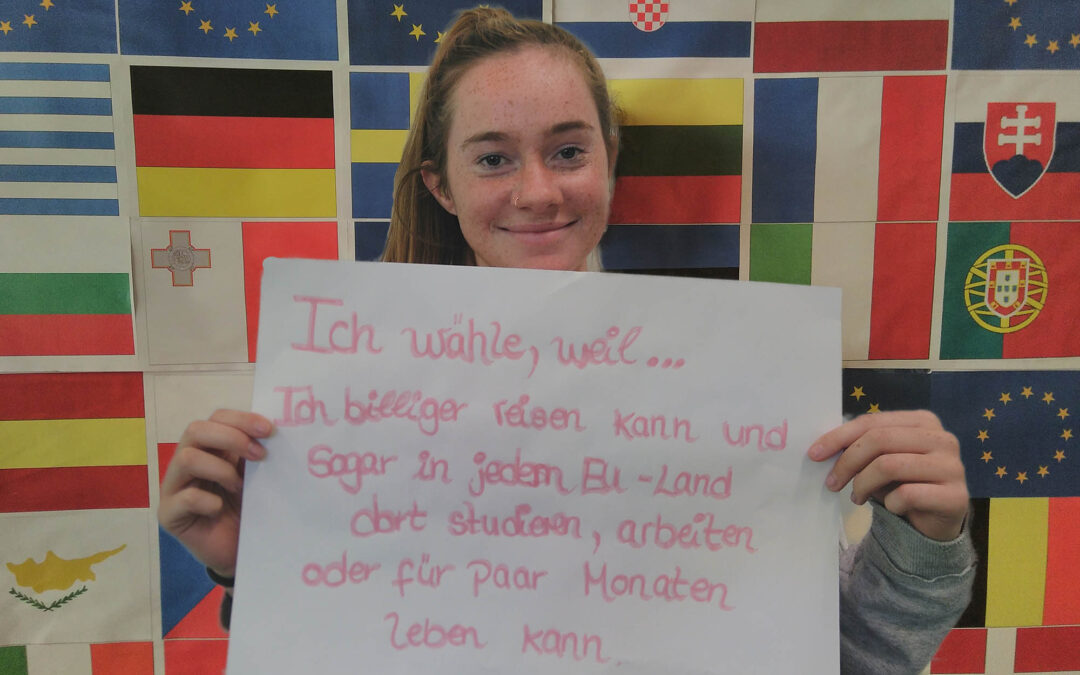 Ich wähle, weil...
Ich billiger reisen kann und
Sogar in jedem EU-Land
dort studieren, arbeiten
oder für paar Monaten
leben kann.